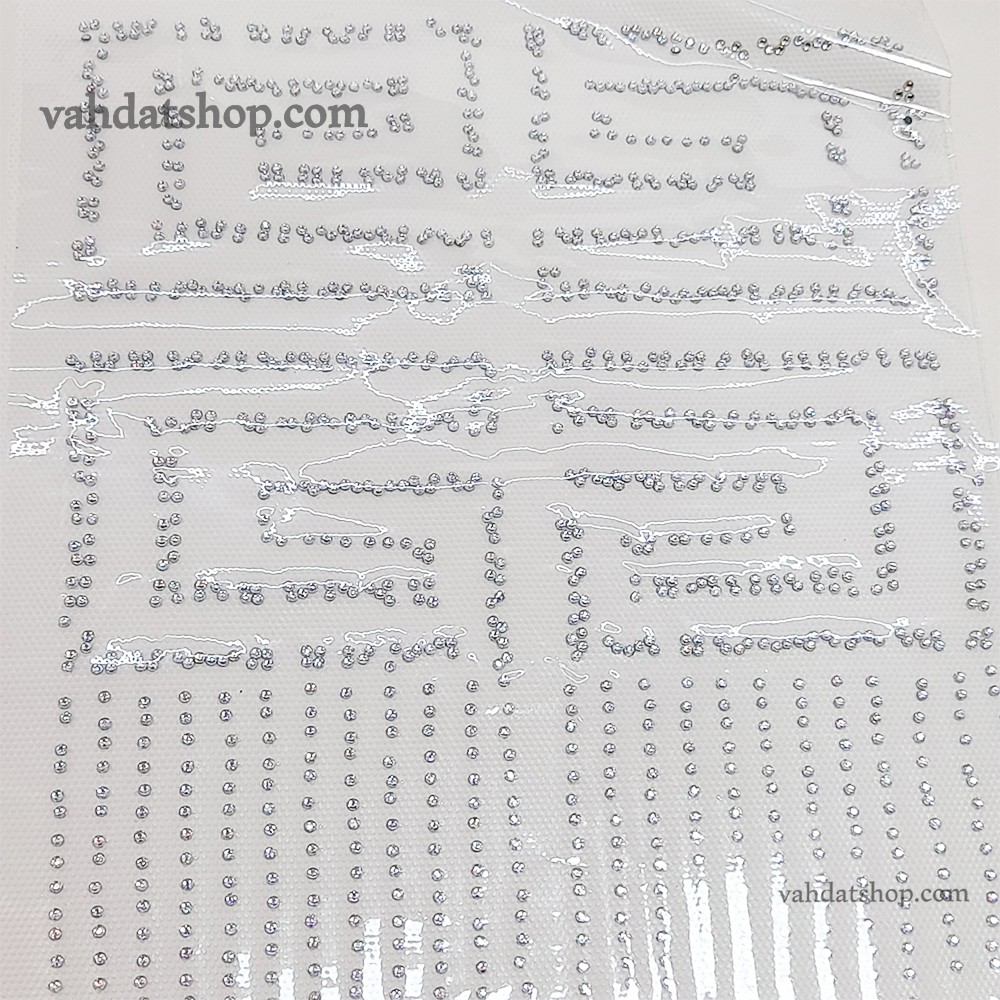 vahdatshop.com
vahdatshop.com